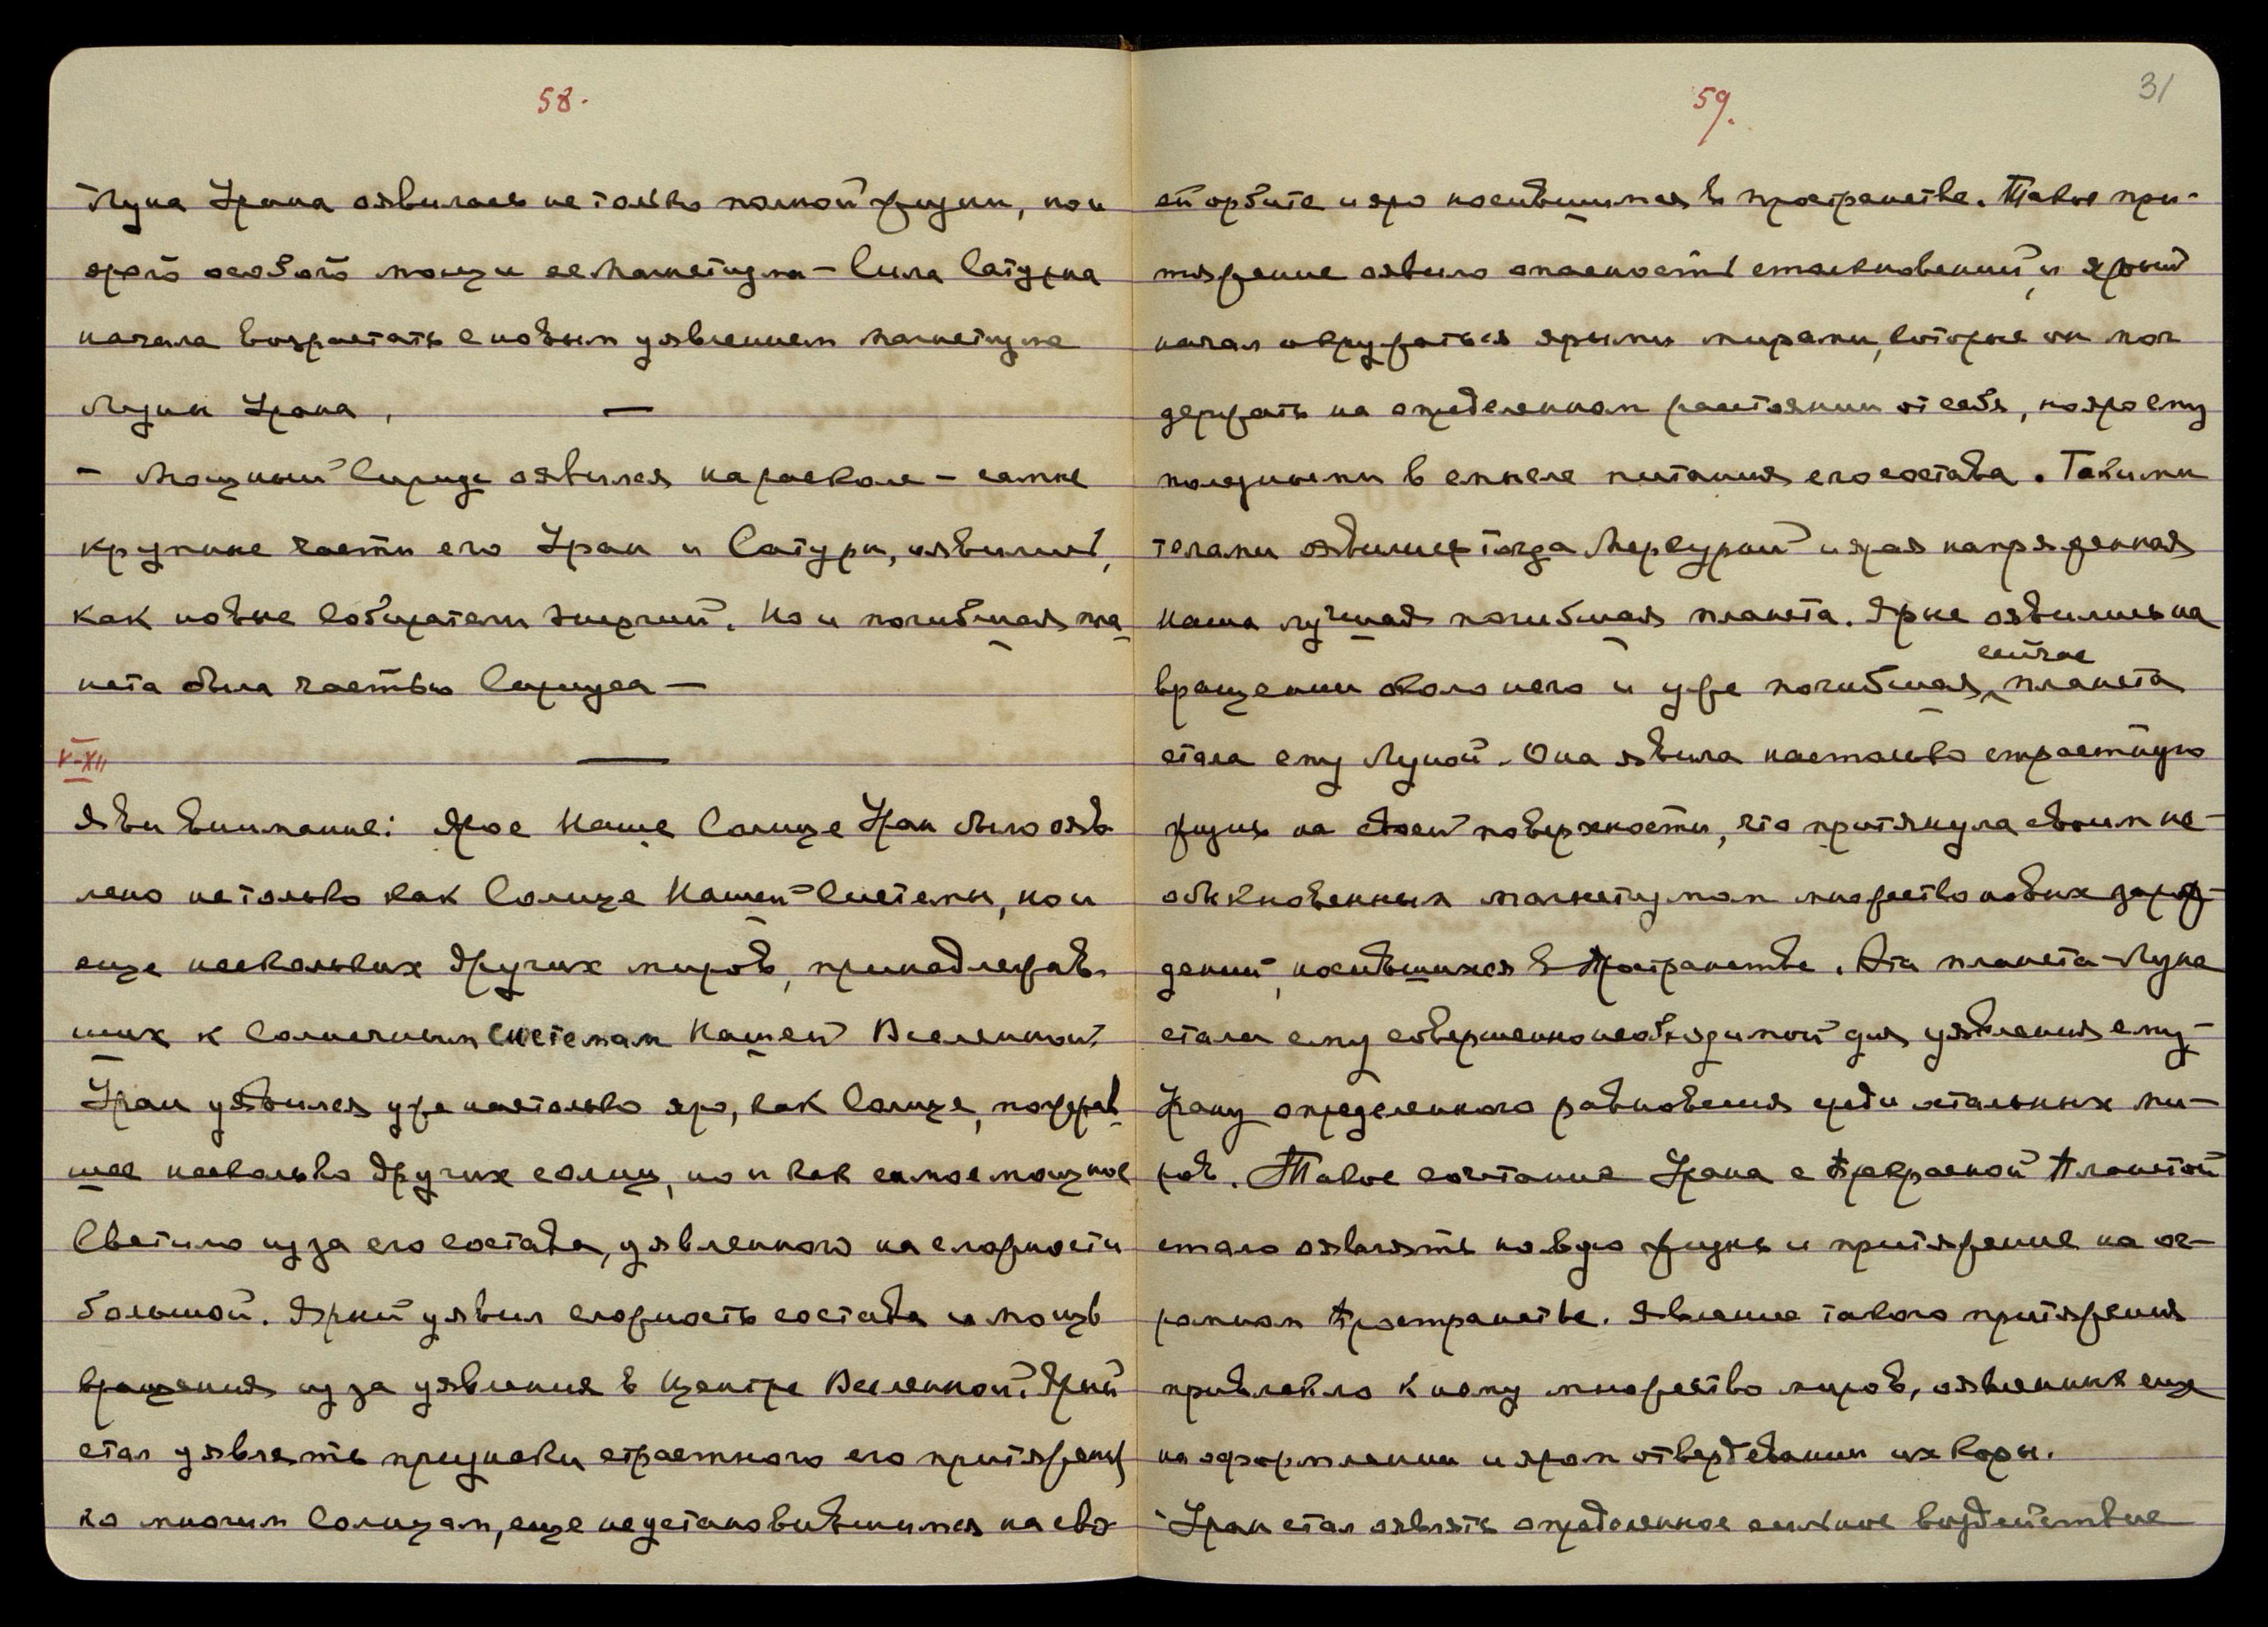 58.
Луна Урана оявилась не только полной жизни, но и
ярого особого мощи ее магнетизма – Сила Сатурна
начала возрастать с новым уявлением магнетизма
Луны Урана. —
– Мощный Сириус оявился на расколе – самые
крупные части его Уран и Сатурн, оявились,
как новые Собиратели энергий. Но и погибшая пла
нета была частью Сириуса —
V-XII
Яви внимание: Ярое Наше Солнце Уран было ояв
лено не только как Солнце Нашей Системы, но и
еще нескольких других миров, принадлежав-
ших к Солнечным Системам Нашей Вселенной.
Уран уявился уже настолько яро, как Солнце, пожрав
шее несколько других солнц, но и как самое мощное
Светило из за его состава, уявленного на сложности
большой. Ярый уявил сложность состава и мощь
вращения из за уявления в центре Вселенной. Ярый
стал уявлять признаки страстного его притяжения
ко многим Солнцам, еще не установившимся на сво-
59.
31
ей орбите и яро носившимся в пространстве. Такое при-
тяжение оявило опасность столкновений, и ярый
начал окружаться ярыми мирами, которые он мог
держать на определенном расстоянии от себя, но яро ему
полезными в смысле питания его состава. Такими
телами оявились тогда Меркурий и ярая напряженная
наша лучшая погибшая планета. Ярые оявились на
вращении около него и уже погибшая сейчас планета
стала ему Луной. Она явила настолько страстную
жизнь на своей поверхности, что притянула своим не-
обыкновенным магнетизмом множество новых зарож-
дений, носившихся в Пространстве. Эта планета-Луна
стала ему совершенно необходимой для уявления ему-
Урану определенного равновесия среди остальных ми-
ров. Такое сочетание Урана с Прекрасной Планетой
стало оявлять новую жизнь и притяжение на ог-
ромном Пространстве. Явление такого притяжения
привлекло к нему множество миров, оявленных еще
на оформлении и яром отвердевании их коры.
Уран стал оявлять определенное сильное воздействие